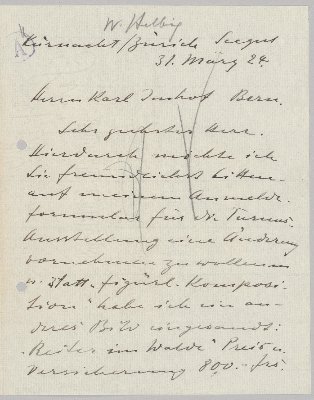 W. Helbig
Küsnacht/Zürich Seegut
31. März 24.
Herrn Karl Imhof Bern.
Sehr geehrter Herr.
Hierdurch möchte ich
Sie freundlichst bitten
auf meinem Anmelde-
formular für die Turnus-
Ausstellung eine Änderung
vornehmen zu wollen
u. statt „figürl. Komposi-
tion" habe ich ein an-
deres Bild eingesandt:
„Reiter im Walde" Preis u.
Versicherung 800.- frs.